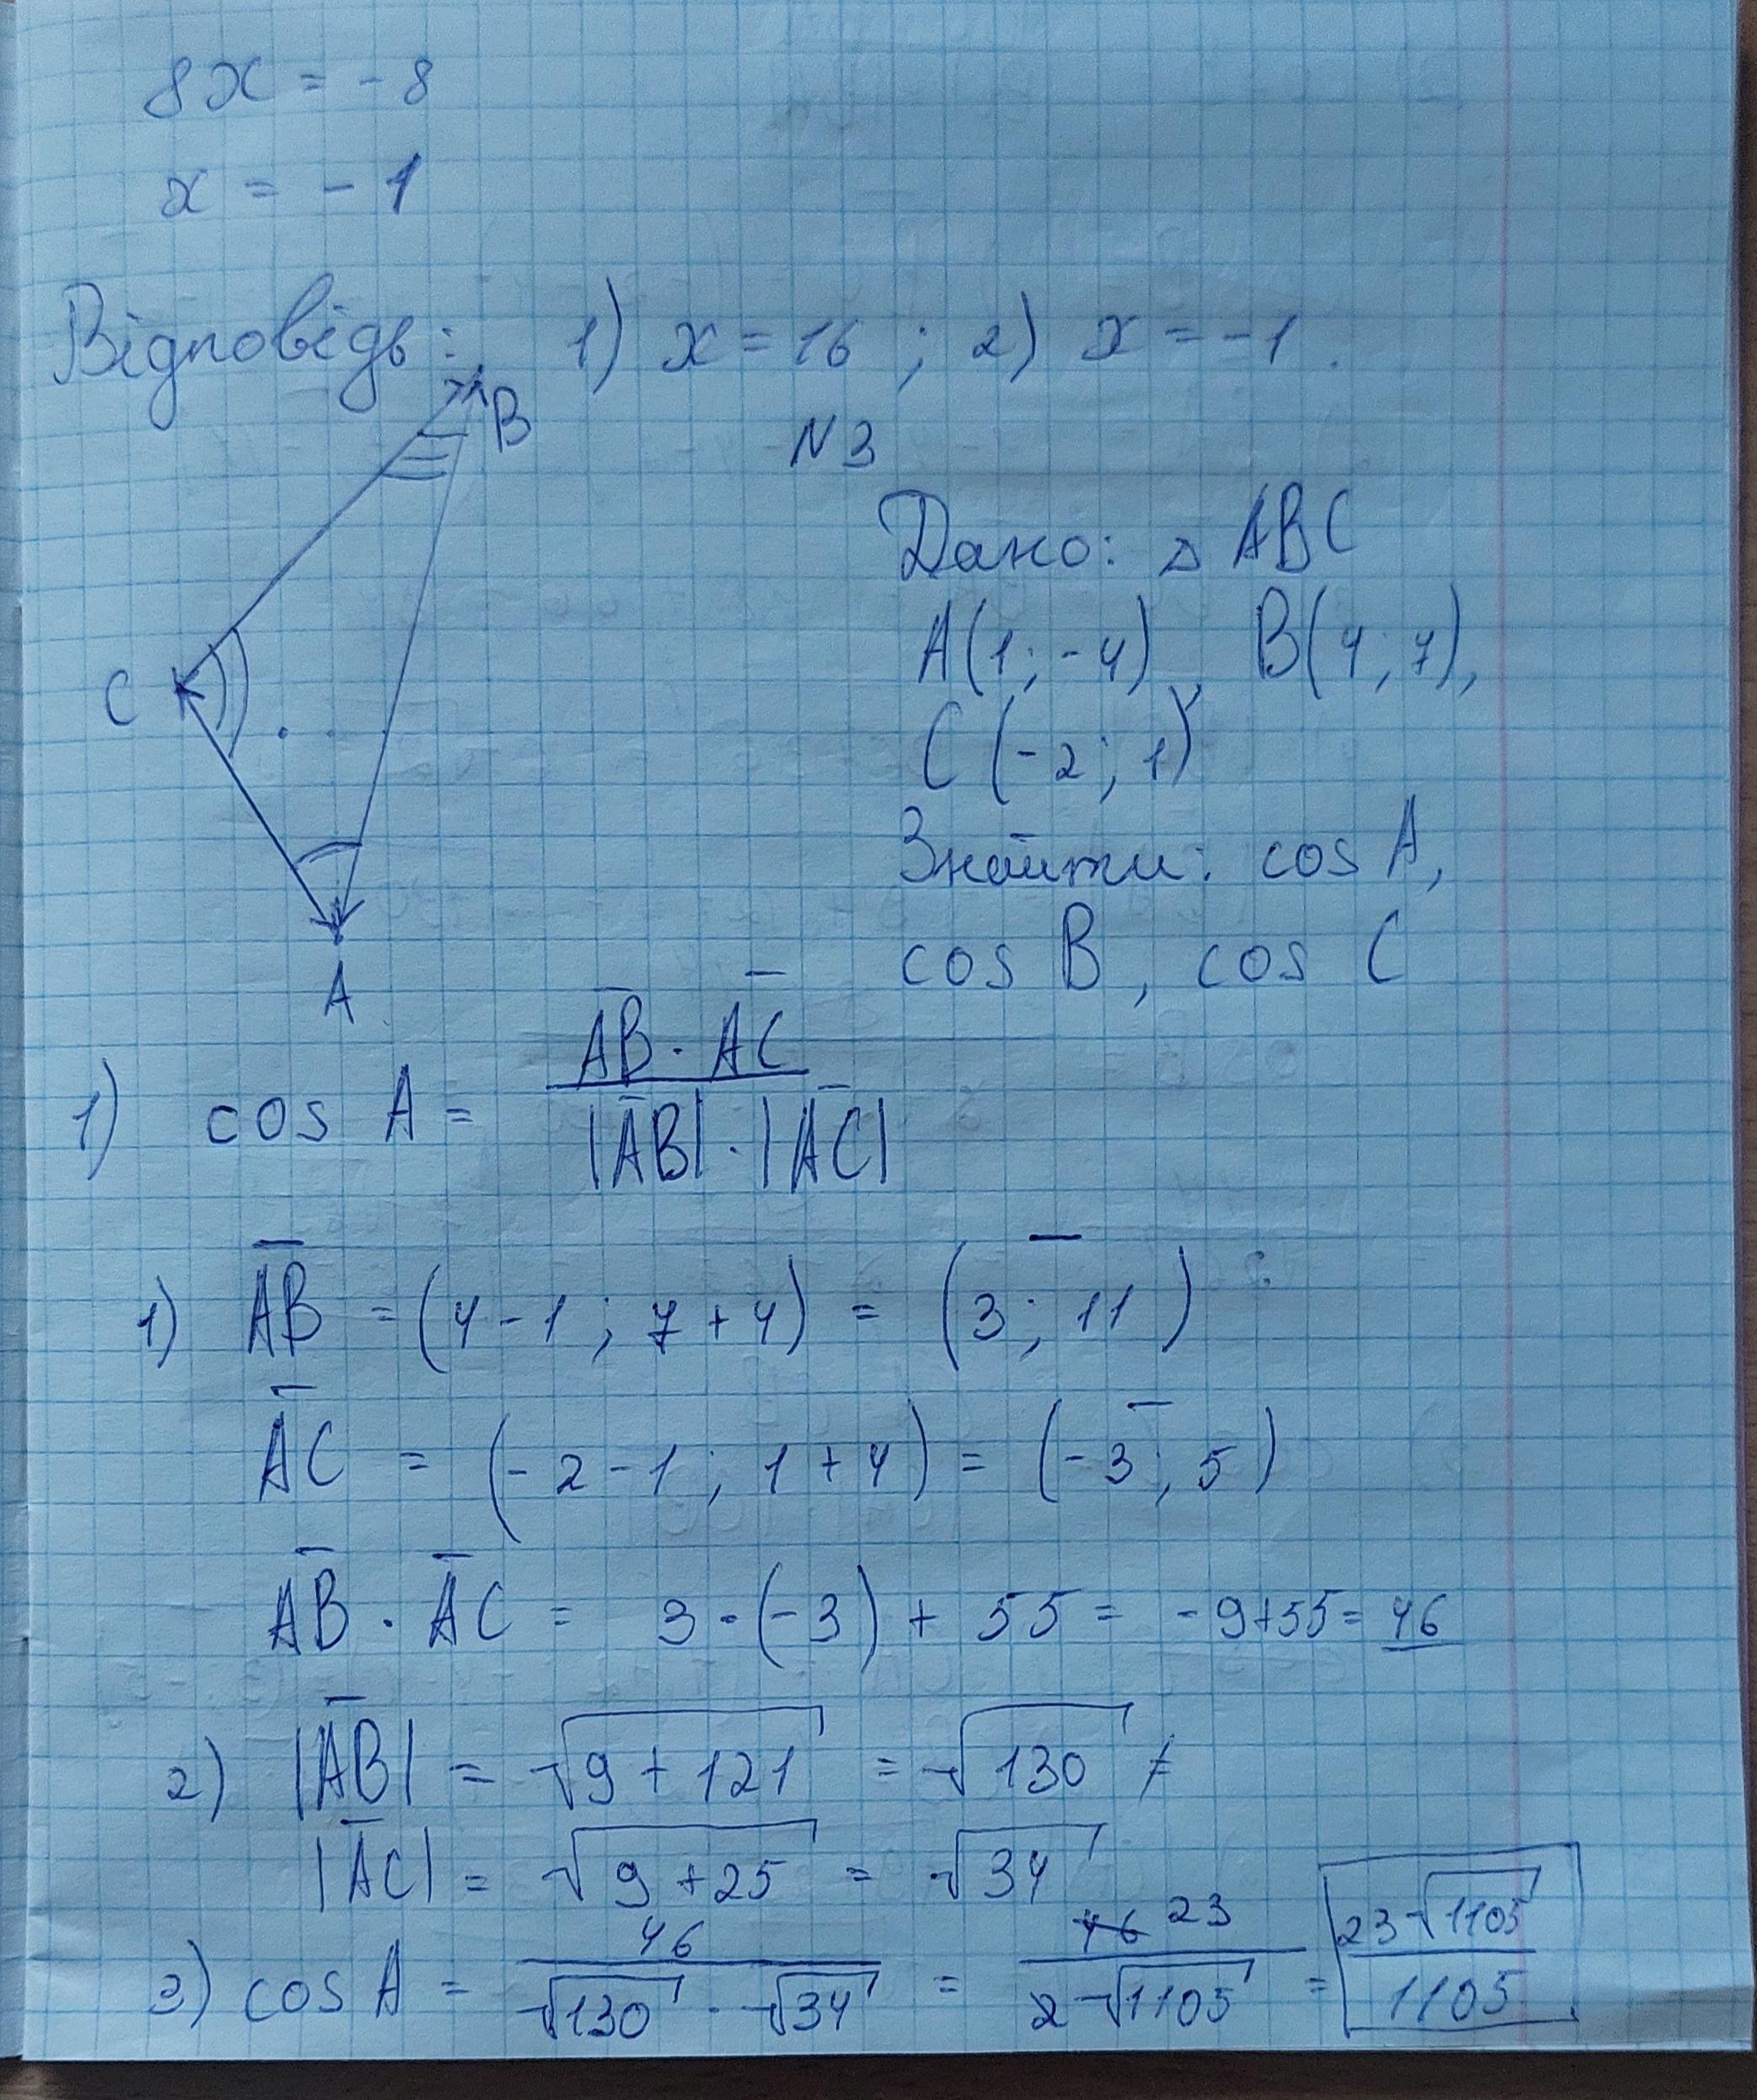 8x = -8
x = -1
Відповідь: 1) x = 16 ; 2) x = -1.
B
N3
Дано: △ ABC
A(1; -4), B(4; 7),
C
C (-2; 1)
Знайти: cos A,
cos B, cos C
A
1) cos A = (A̅B̅ · A̅C̅) / (|A̅B̅| · |A̅C̅|)
1) A̅B̅ = (4 - 1 ; 7 + 4) = (3 ; 11)
A̅C̅ = (-2 - 1 ; 1 + 4) = (-3 ; 5)
A̅B̅ · A̅C̅ = 3 · (-3) + 55 = -9 + 55 = 46
2) |A̅B̅| = √(9 + 121) = √130
|A̅C̅| = √(9 + 25) = √34
3) cos A = 46 / (√130 · √34) = 46 23 / (2√1105) = 23√1105 / 1105